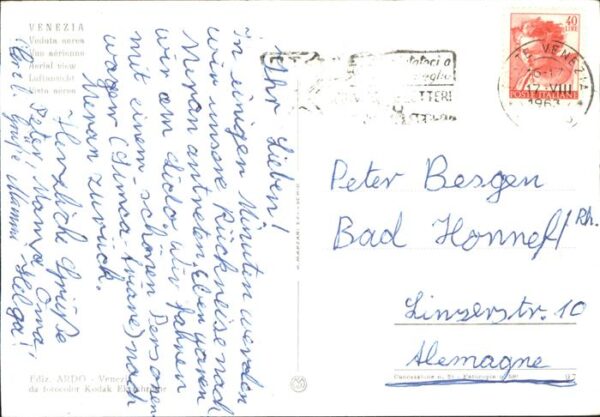 VENEZIA
Veduta aerea
Vue aérienne
Aerial view
Luftansicht
Vista aérea
Ihr Lieben!
In einigen Minuten werden
wir unsere Rückreise nach
Meran antreten. Eben waren
wir am Lido. Wir fahren
mit einem schönen Personen
wagen (Simca-Ariane) nach
Meran zurück.
Herzliche Grüße
Peter, Mama, Oma,
Helga!
Herzl. Grüße Mammi
40
LIRE
POSTE ITALIANE
VENEZIA
17. VIII
1963
Peter Besgen
Bad Honnef/Rh.
Linzerstr. 10
Alemagne
Ediz. ARDO - Venezia
da fotocolor Kodak Ektachrome
97